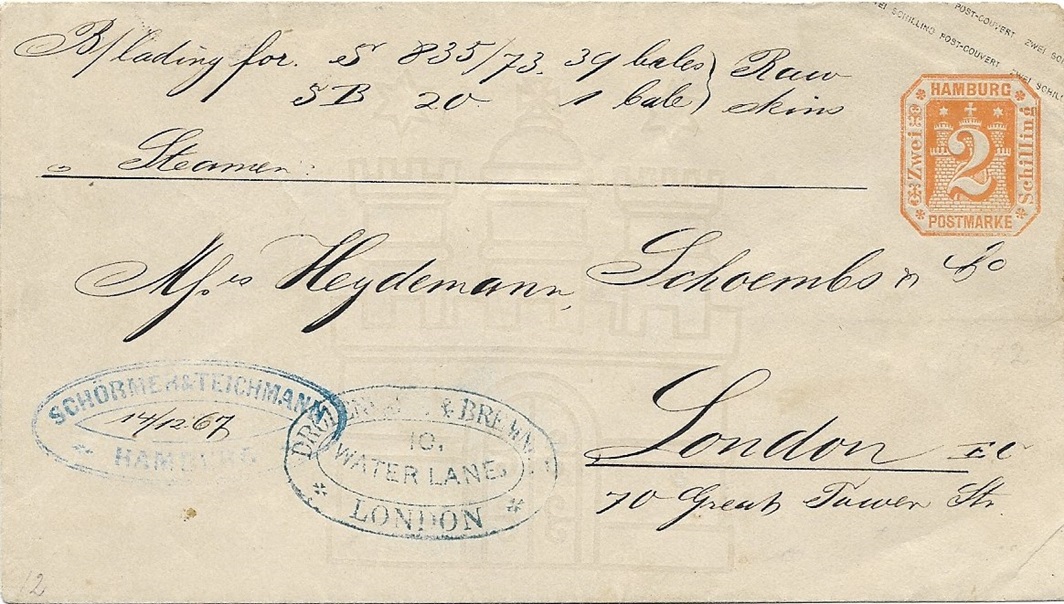 B/lading for. S 835/73. 39 bales } Raw
SB 20 1 bale } skins
„ Steamer:
ZWEI SCHILLING POST-COUVERT ZWEI SCHIL
POST-COUVERT ZWEI SC
HAMBURG
Zwei
2
Schilling
POSTMARKE
M/srs Heydemann, Schoembs & Co
London EC
70 Great Tower Str.
SCHÖRMER & TEICHMANN
14/12 67
HAMBURG
& BREWN
10,
WATER LANE,
LONDON
12